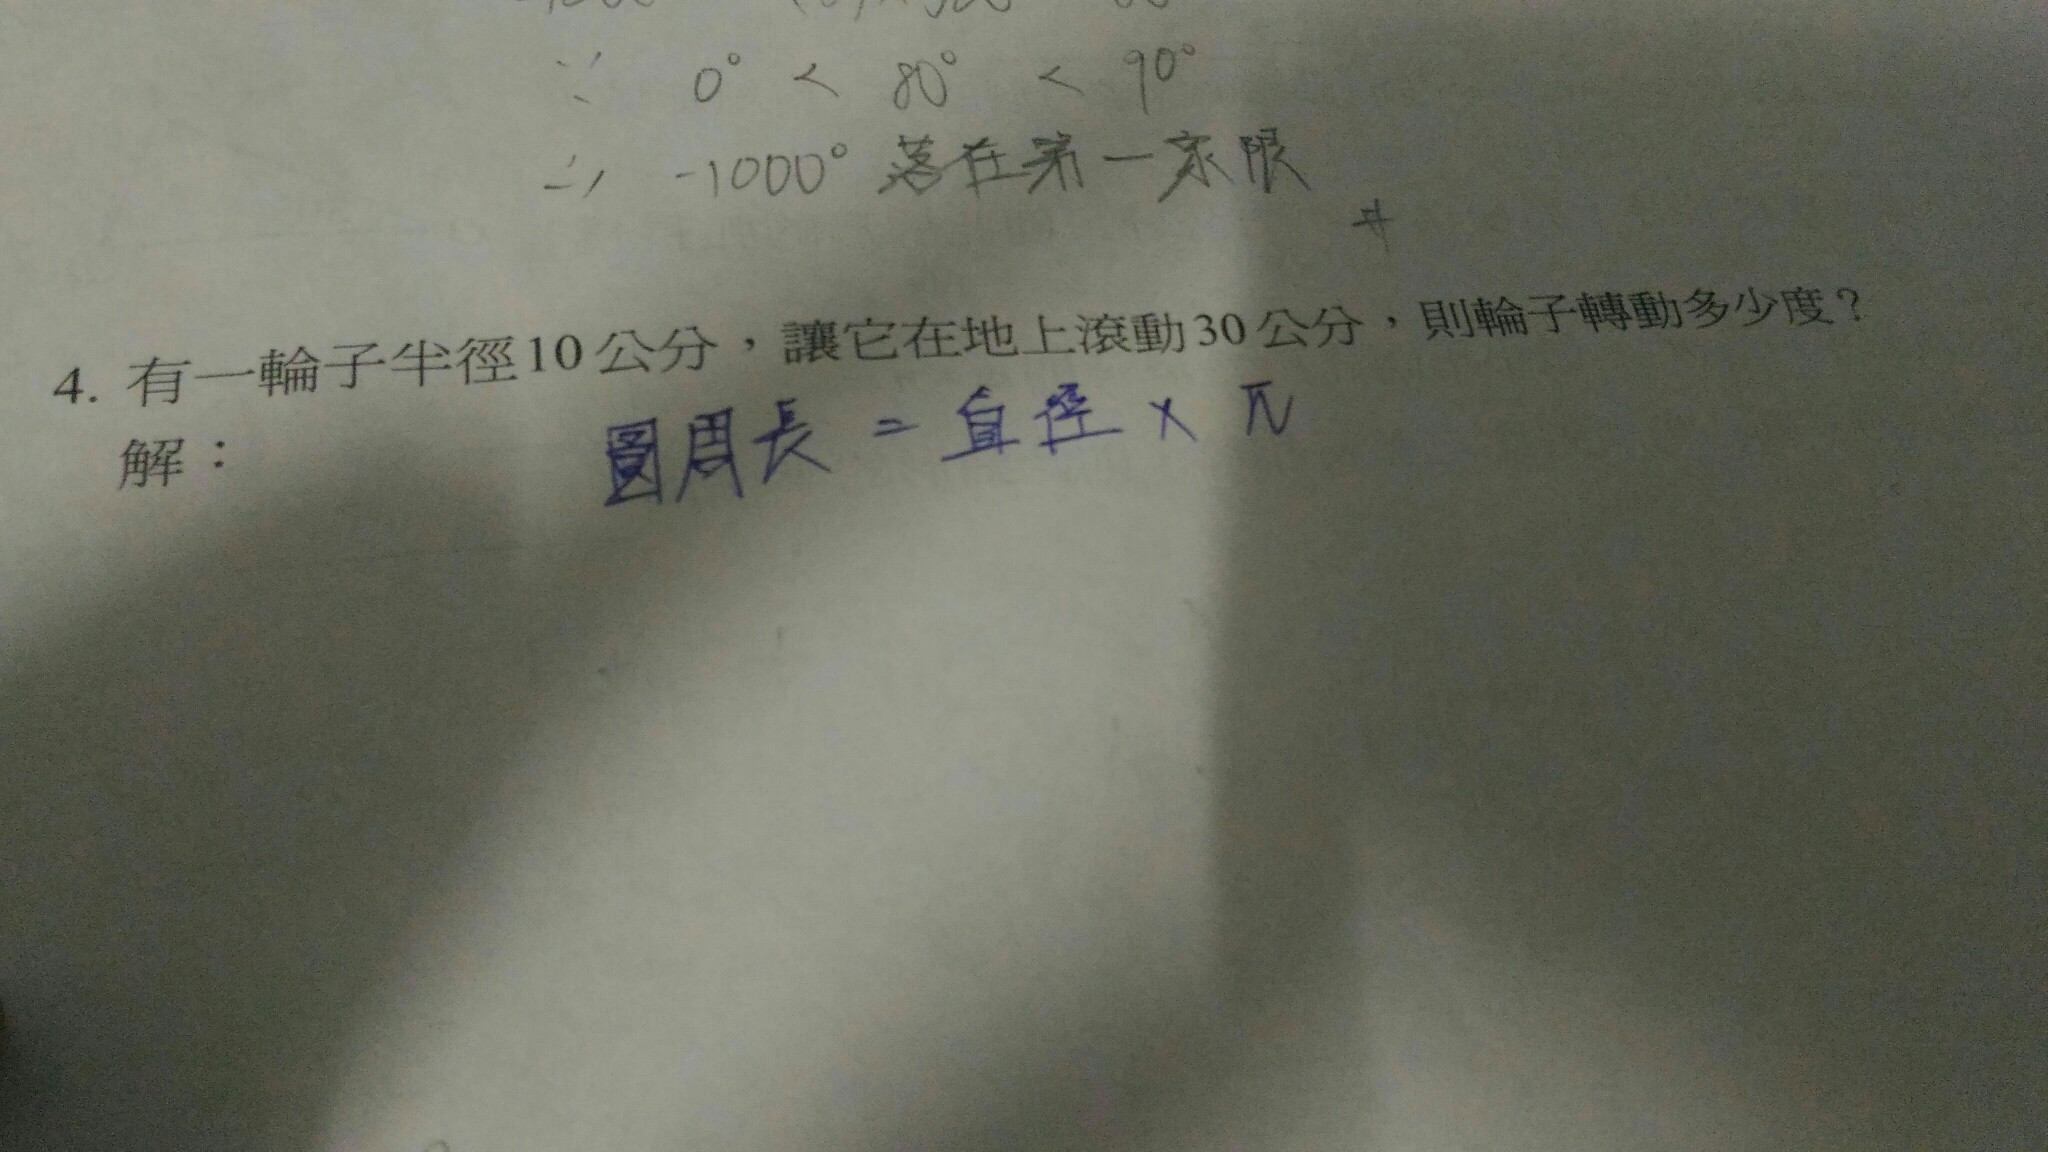 ∵ 0° < 80° < 90°
∴ -1000° 落在第一象限
#
4. 有一輪子半徑10公分，讓它在地上滾動30公分，則輪子轉動多少度？
解：
圓周長 = 直徑 × π